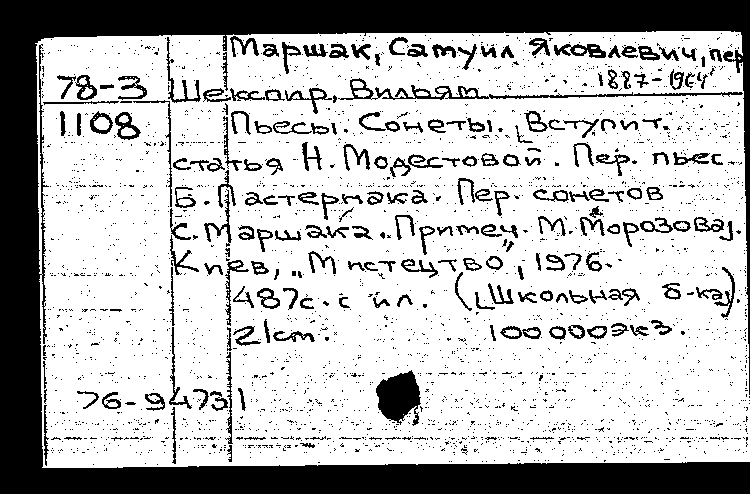 Маршак, Самуил Яковлевич, пер
1887-1964
78-3 Шекспир, Вильям.
1108 Пьесы. Сонеты. [Вступит.
статья Н. Модестовой. Пер. пьес
Б. Пастернака. Пер. сонетов
С. Маршака. Примеч. М. Морозова].
Киев, „Мистецтво", 1976.
487с. с ил. ([Школьная б-ка]).
21см. 100000экз.
76-94731